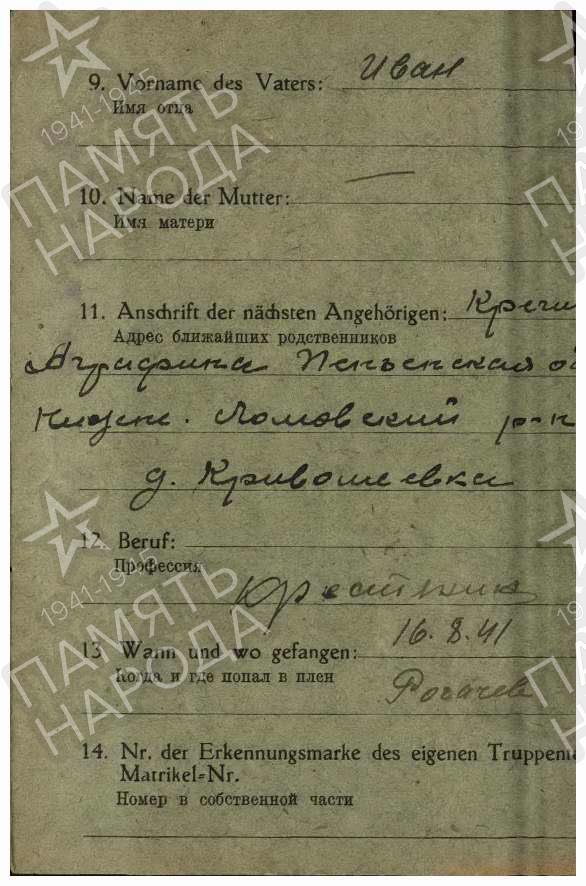 9. Vorname des Vaters: Иван
Имя отца
10. Name der Mutter: —
Имя матери
11. Anschrift der nächsten Angehörigen:
Адрес ближайших родственников
Аграфина Пензенская об
Нижне. Ломовский р-н
д. Кривошеевка
12. Beruf:
Профессия
13 Wann und wo gefangen: 16.8.41
Когда и где попал в плен
Рогачев
14. Nr. der Erkennungsmarke des eigenen Truppente
Matrikel=Nr.
Номер в собственной части
1941-1945
ПАМЯТЬ
НАРОДА
1941-1945
ПАМЯТЬ
НАРОДА